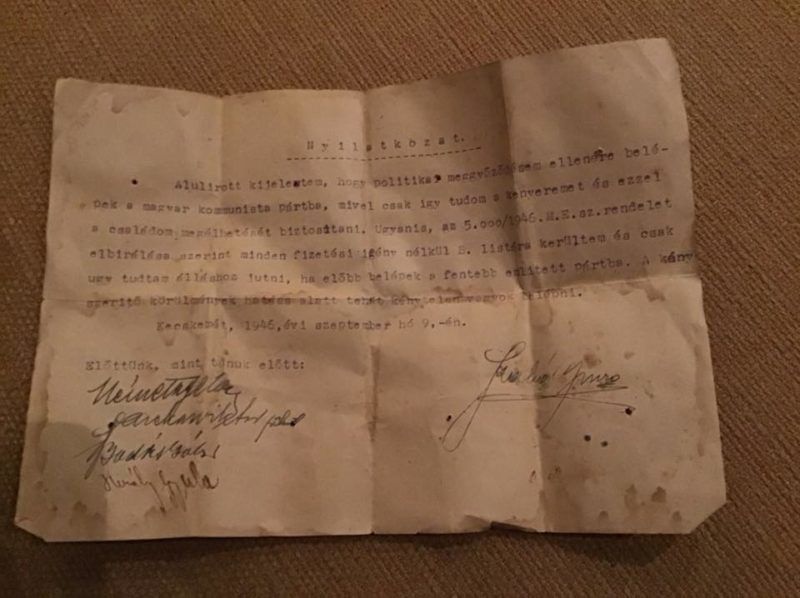 Nyilatkozat.
Alulirott kijelentem, hogy politikai meggyőződésem ellenére belé-
pek a magyar kommunista pártba, mivel csak igy tudom a kenyeremet és ezzel
a családom megélhetését biztositani. Ugyanis, az 5.000/1946.M.E.sz.rendelet
elbirálása szerint minden fizetési igény nélkül B. listára kerültem és csak
ugy tudtam álláshoz jutni, ha előbb belépek a fentebb emlitett pártba. A kény
szeritő körülmények hatása alatt tehát kénytelen vagyok belépni.
Kecskemét, 1946,évi szeptember hó 9.-én.
Előttünk, mint tanuk előtt:
Király Gyula